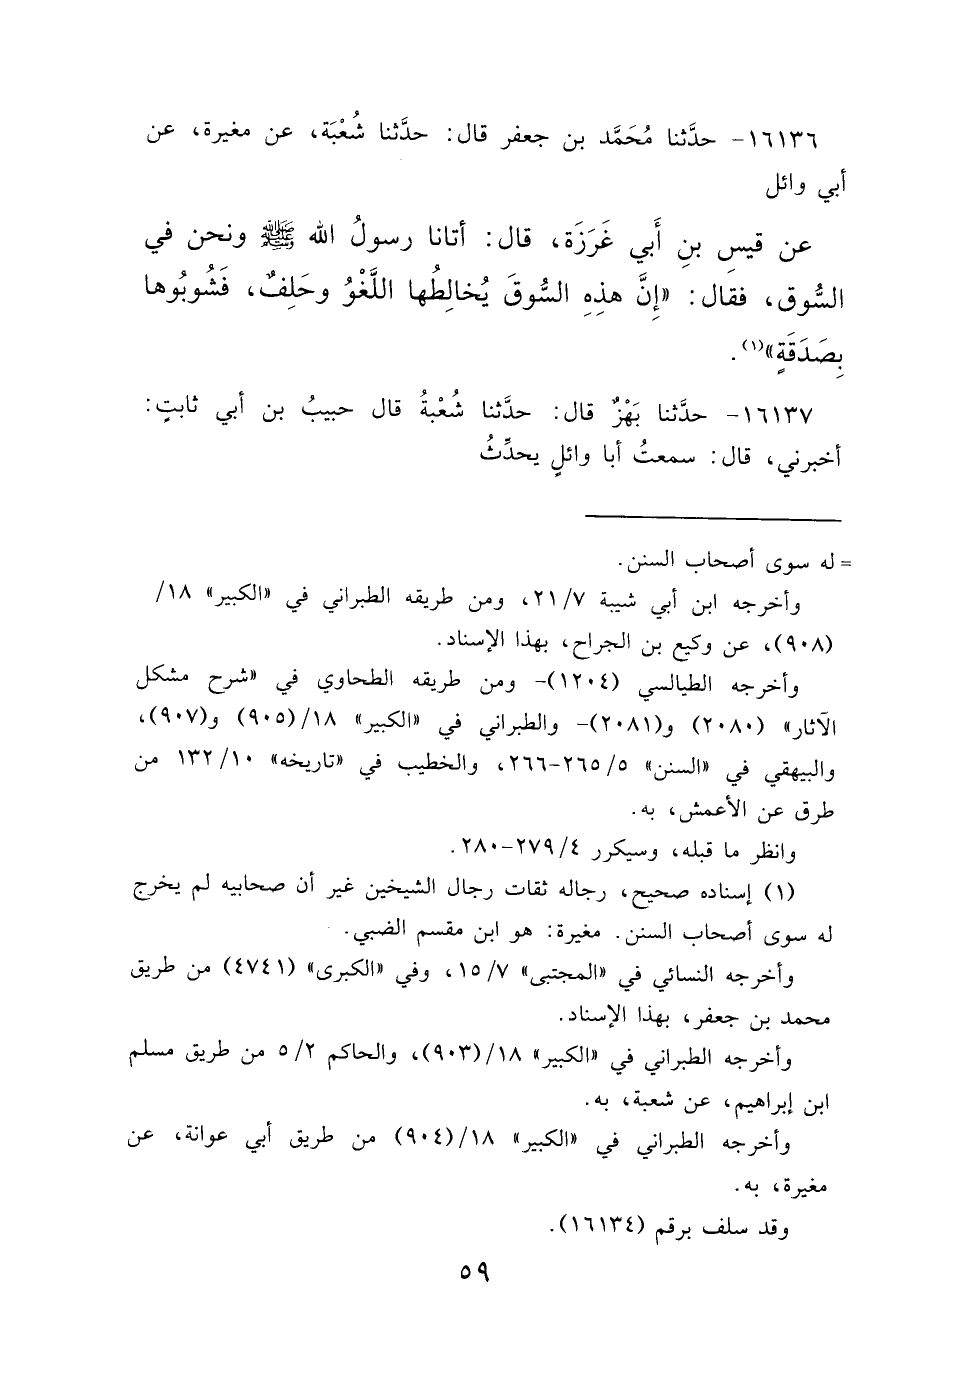 ١٦١٣٦- حدَّثنا مُحَمَّد بن جعفر قال: حدَّثنا شُعْبَة، عن مغيرة، عن
أبي وائل
عن قيسِ بنِ أَبي غَرَزَة، قال: أتانا رسولُ الله ﷺ ونحن في
السُّوق، فقال: «إِنَّ هذِهِ السُّوقَ يُخالِطُها اللَّغْوُ وحَلِفٌ، فَشُوبُوها
بِصَدَقَةٍ»(١).
١٦١٣٧- حدَّثنا بَهْزٌ قال: حدَّثنا شُعْبةُ قال حبيبُ بن أبي ثابتٍ:
أخبرني، قال: سمعتُ أبا وائلٍ يحدِّثُ
= له سوى أصحاب السنن.
وأخرجه ابن أبي شيبة ٢١/٧، ومن طريقه الطبراني في «الكبير» ١٨/
(٩٠٨)، عن وكيع بن الجراح، بهذا الإسناد.
وأخرجه الطيالسي (١٢٠٤)- ومن طريقه الطحاوي في «شرح مشكل
الآثار» (٢٠٨٠) و(٢٠٨١)- والطبراني في «الكبير» ١٨/(٩٠٥) و(٩٠٧)،
والبيهقي في «السنن» ٢٦٥/٥-٢٦٦، والخطيب في «تاريخه» ١٣٢/١٠ من
طرق عن الأعمش، به.
وانظر ما قبله، وسيكرر ٢٧٩/٤-٢٨٠.
(١) إسناده صحيح، رجاله ثقات رجال الشيخين غير أن صحابيه لم يخرج
له سوى أصحاب السنن. مغيرة: هو ابن مقسم الضبي.
وأخرجه النسائي في «المجتبى» ١٥/٧، وفي «الكبرى» (٤٧٤١) من طريق
محمد بن جعفر، بهذا الإسناد.
وأخرجه الطبراني في «الكبير» ١٨/(٩٠٣)، والحاكم ٥/٢ من طريق مسلم
ابن إبراهيم، عن شعبة، به.
وأخرجه الطبراني في «الكبير» ١٨/(٩٠٤) من طريق أبي عوانة، عن
مغيرة، به.
وقد سلف برقم (١٦١٣٤).
٥٩